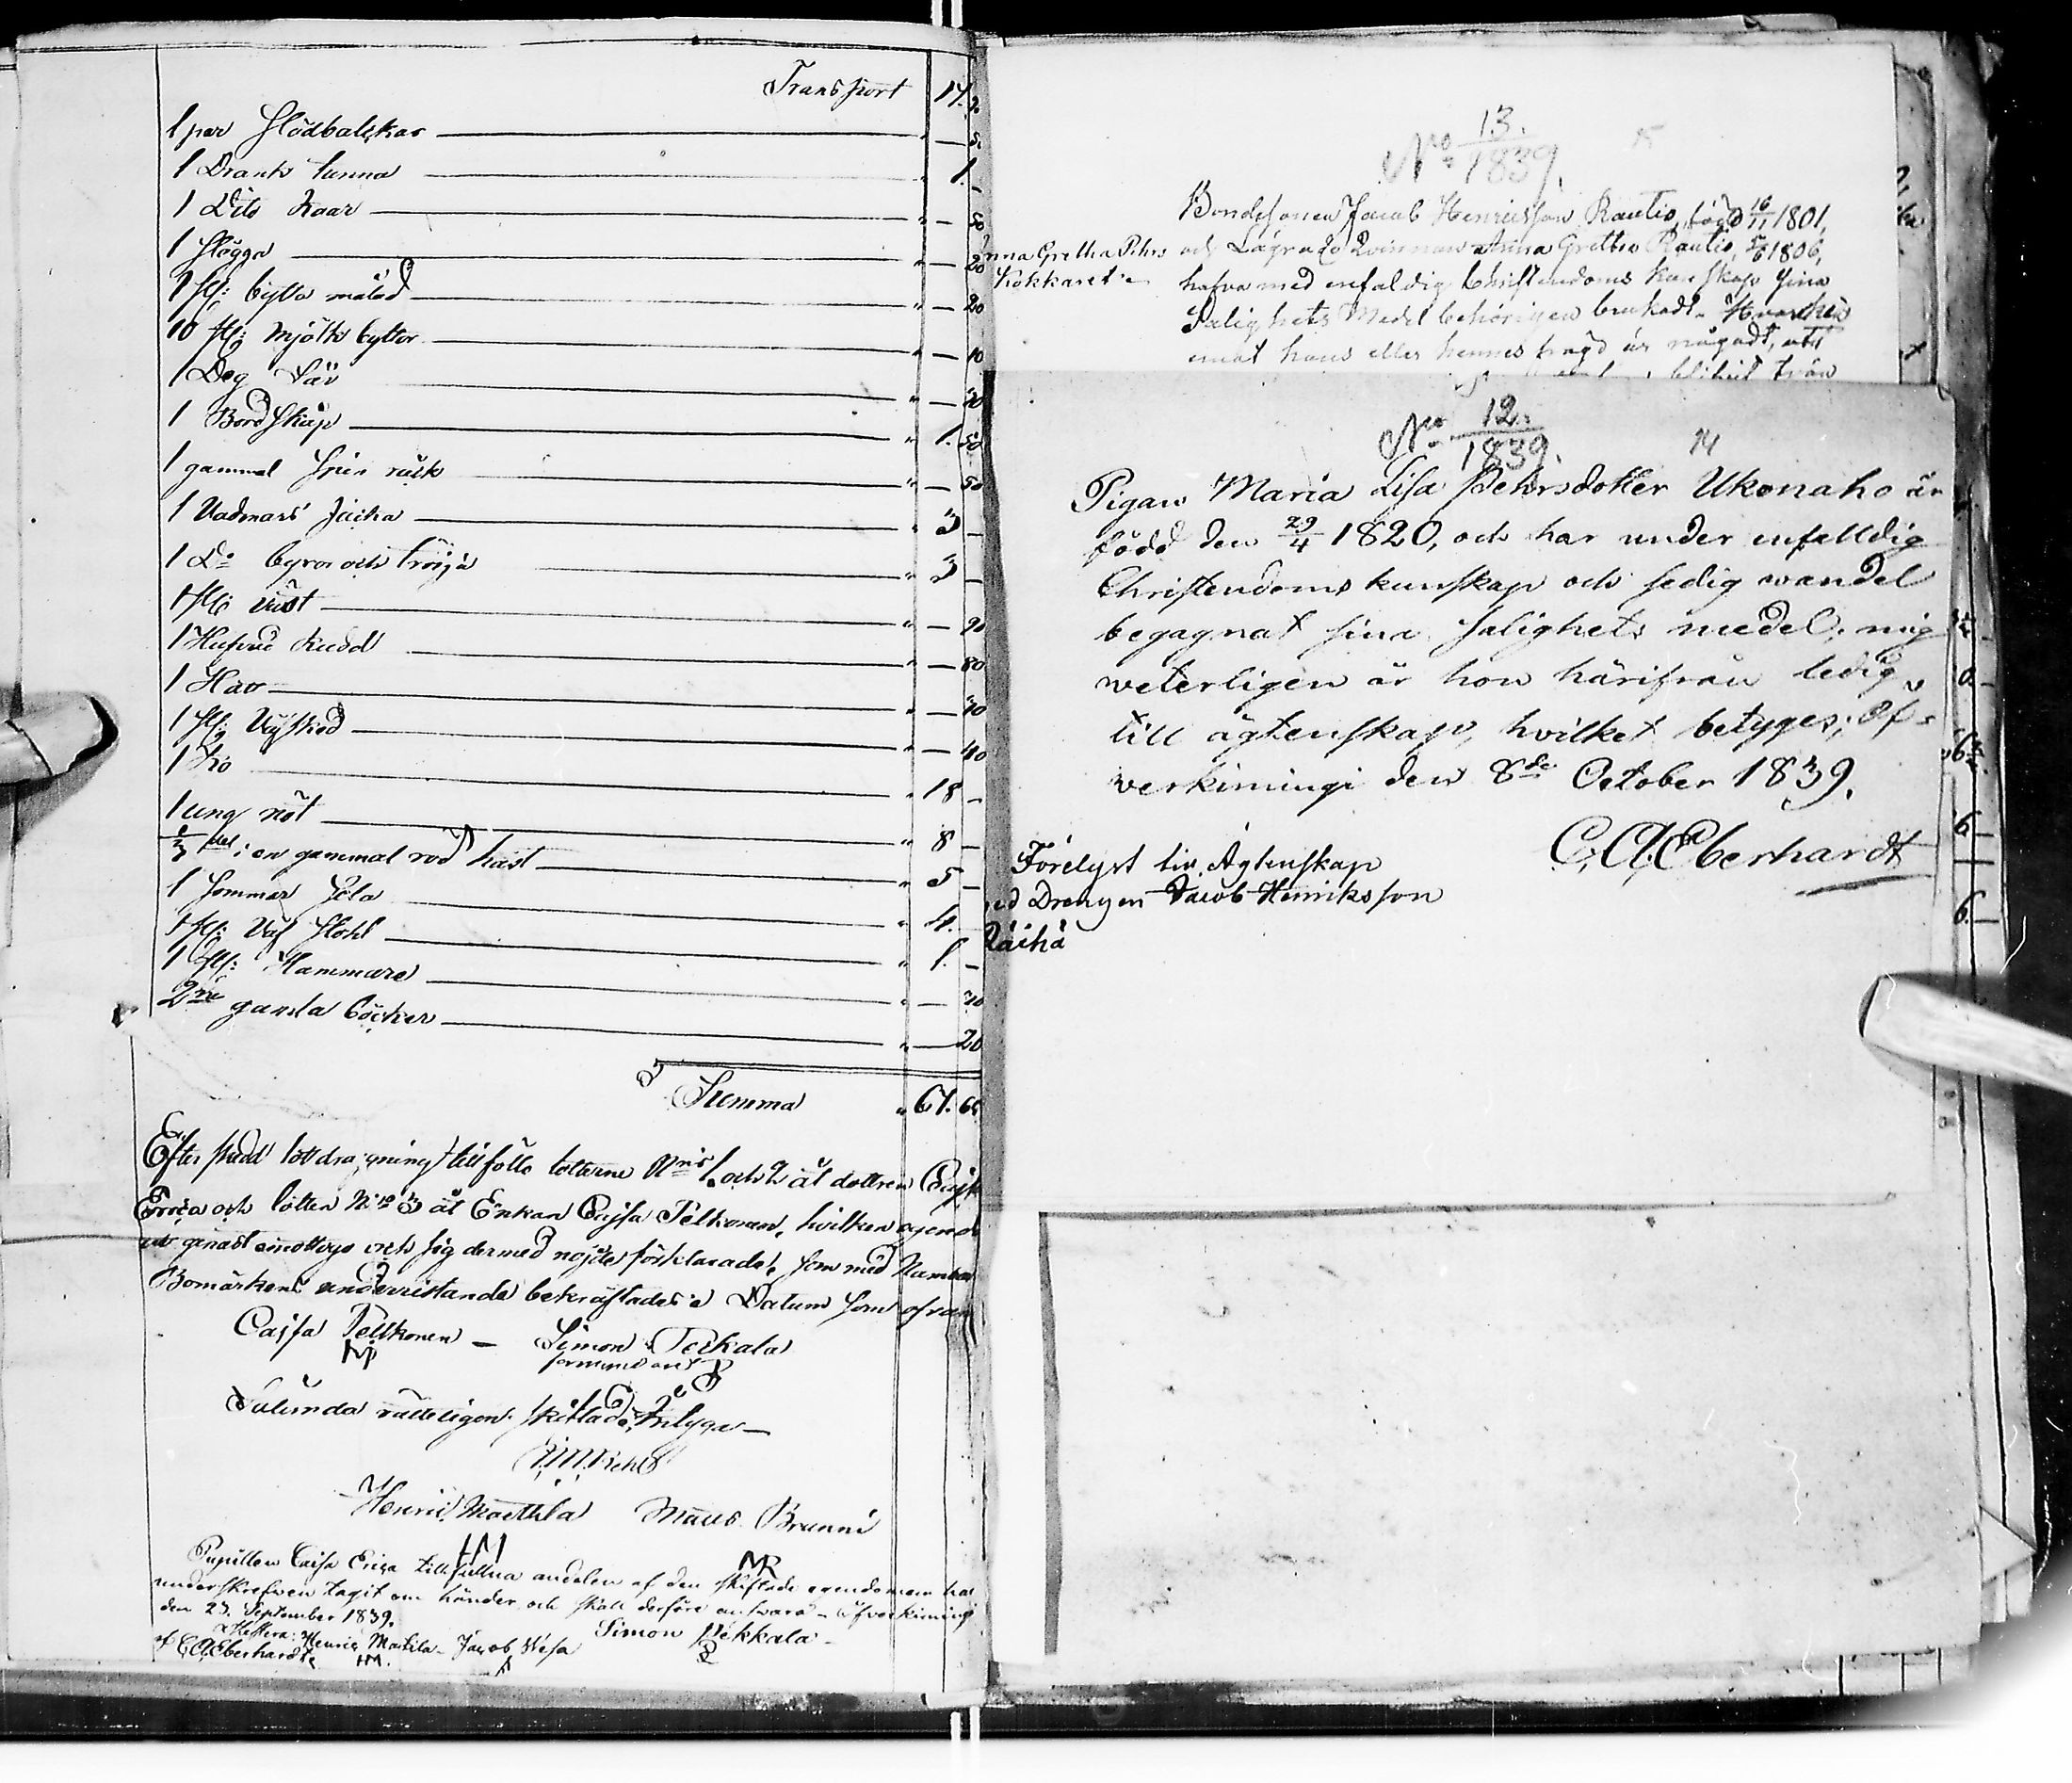 Transport 17.
1 par Slädbalckar — 5.
1 Dranks tunna 1. —
1 Dito Kaar — 50
1 Slägga — 20
1 st: bytta målad — 20
10 st: Mjölks byttor — 10
1 Deg — 20
1 Bord Skåp 1. 50
1 gammal — 50
1 Vadmars Jacka 3 —
1 Do byxor och tröija 3 —
1 st: väst — 90
1 Hufvud kudd — 80
1
1 st: — 40
1 Ko 18 —
1 ung nöt 8 —
del i en gammal röd häst 5 —
1 Sommar Sela 4. —
1 st: Väf Stohl 1. —
1 st: Hammare — 30
2ne gamla böcker — 20
Summa 67. 65
Efter skedd lottdragning tillföllo lotterne Nris 1. och 2 åt dottren Cajsa
Erica och lotten N:ro 3 åt Enkan Cajsa Pelkonen, hvilken egendom
genast emottogs och sig dermed nöjde förklarade, som med Namn och
Bomärkens underritande bekräftades; Datum som ofvan
Cajsa Pelkonen — Simon Pekkala
förmyndare
Sålunda rätteligen skiftadt, betyga —
Henric Marttila Matts Brunni
HM MR
Pupillen Caisa Erica tillfallna andelen af den skiftade egendomen har
underskrefwen tagit om händer och skall derföre answara — Öfverkiming
den 23. September 1839.
Simon Pekkala —
Henric Martila — Jacob Wesa
af C A Eberhardt HM.
No 13. / 1839. 15
Bondesonen Jacob Henricsson Rautio, född 16/11 1801,
Anna Gretha Pehrs och Lägrade Qvinnan Anna Gretha Rautio, 1806,
Kokkare hafva med enfaldig Christendoms kunskap sina
Salighets Medel behörigen brukadt. Hvarken
emot hans eller hennes frägd är någodt, att
No 12. / 1839. 14
Pigan Maria Lisa Pehrsdoter Ukonaho är
född den 29/4 1820, och har under enfalldig
Christendoms kunskap och sedig wandel
begagnat sina salighets medel; mig
veterligen är hon härifrån ledig
till ägtenskap, hvilket betyges; Öf=
verkimingi den 8de October 1839.
C. A. Eberhardt
Förelyst till Ägtenskap
med Drengen Jacob Henriksson
Räihä